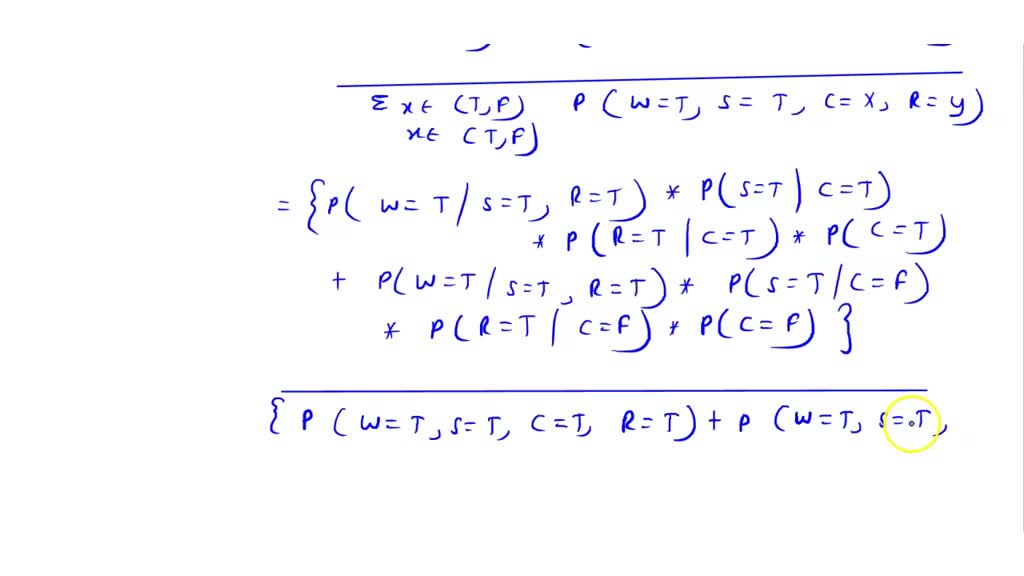 Σ x ∈ (T,F) P (W=T, S=T, C=X, R=y)
x ∈ (T,F)
= {P( W=T/S=T, R=T) * P(S=T | C=T)
* P(R=T | C=T) * P(C=T)
+ P(W=T/S=T, R=T) * P(S=T/C=F)
* P(R=T | C=F) * P(C=F) }
{ P (W=T, S=T, C=T, R=T) + P (W=T, S=T,